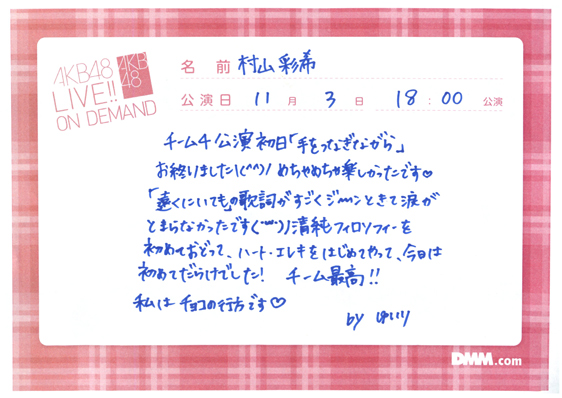 AKB48
LIVE!!
ON DEMAND
AKB
48
名 前 村山彩希
公演日 11 月 3 日 18:00 公演
チーム4公演初日「手をつなぎながら」
お終りました\(^^)/ めちゃめちゃ楽しかったです♡
「遠くにいても」の歌詞がすごくジ〜ンときて涙が
とまらなかったです 清純フィロソフィーを
初めておどって、ハート・エレキをはじめてやって、今日は
初めてだらけでした! チーム最高!!
私は チョコの行方です♡
by ゆいり
DMM.com